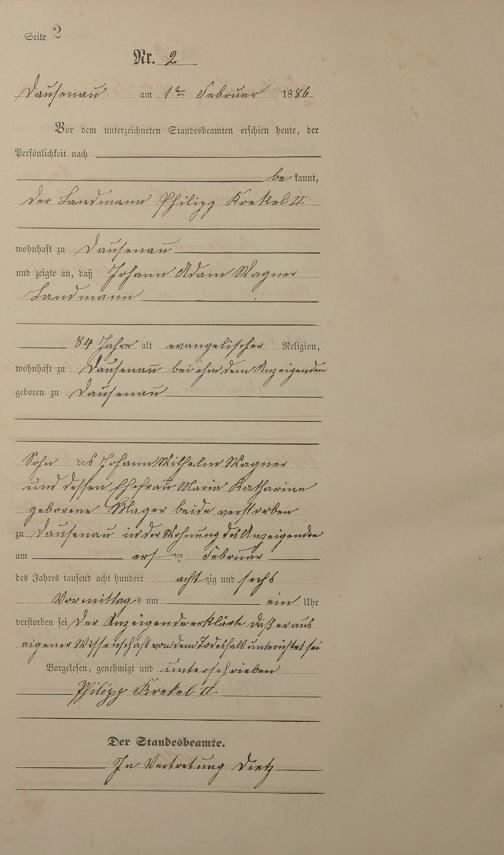 Seite 2
Nr. 2
Dausenau am 1ten Februar 1886
Vor dem unterzeichneten Standesbeamten erschien heute, der
Persönlichkeit nach
be kannt,
der Landmann Philipp Krekel II
wohnhaft zu Dausenau
und zeigte an, daß Johann Adam Wagner
Landmann
84 Jahre alt evangelischer Religion,
wohnhaft zu Dausenau bei ihm dem Anzeigenden
geboren zu Dausenau
Sohn des Johann Wilhelm Wagner
und dessen Ehefrau Maria Katharine
geborene Mager beide verstorben
zu Dausenau in der Wohnung des Anzeigenden
am ersten Februar
des Jahres tausend acht hundert achtzig und sechs
Vormittags um ein Uhr
verstorben sei Der Anzeigende erklärte daß er aus
eigener Wissenschaft von dem Todesfall unterrichtet sei
Vorgelesen, genehmigt und unterschrieben
Philipp Krekel II
Der Standesbeamte.
In Vertretung Dietz